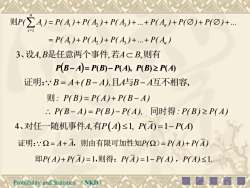 则P(∑_{i=1}^{n} A_i) = P(A_1) + P(A_2) + P(A_3) + ... + P(A_n) + P(∅) + P(∅) + ...
= P(A_1) + P(A_2) + P(A_3) + ... + P(A_n)
3、设A,B是任意两个事件,若A⊂B,则有
P(B-A)=P(B)-P(A), P(B)≥P(A)
证明:∵B=A+(B-A),且A与B-A互不相容,
则:P(B)=P(A)+P(B-A)
∴P(B-A)=P(B)-P(A), 同时得:P(B)≥P(A)
4、对任一随机事件A,有P(A)≤1, P(Ā)=1-P(A)
证明:∵Ω=A+Ā, 则由有限可加性知P(Ω)=P(A)+P(Ā)
即P(A)+P(Ā)=1,则得: P(Ā)=1-P(A), P(A)≤1.
Probability and Statistics NKDI